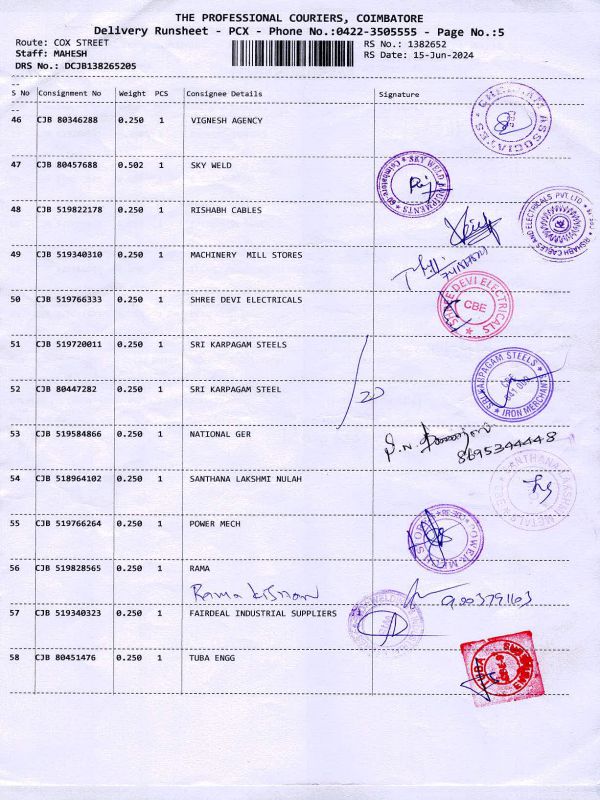 THE PROFESSIONAL COURIERS, COIMBATORE
Delivery Runsheet - PCX - Phone No.:0422-3505555 - Page No.:5
Route: COX STREET RS No.: 1382652
Staff: MAHESH RS Date: 15-Jun-2024
DRS No.: DCJB138265205
S No Consignment No Weight PCS Consignee Details Signature
46 CJB 80346288 0.250 1 VIGNESH AGENCY
ASSOCIATES
47 CJB 80457688 0.502 1 SKY WELD
SKY WELD EQUIPMENTS
48 CJB 519822178 0.250 1 RISHABH CABLES
RISHABH CABLES AND ELECTRICALS PVT. LTD
49 CJB 519340310 0.250 1 MACHINERY MILL STORES
50 CJB 519766333 0.250 1 SHREE DEVI ELECTRICALS
SHREE DEVI ELECTRICALS
CBE
51 CJB 519720011 0.250 1 SRI KARPAGAM STEELS
SRI KARPAGAM STEELS
IRON MERCHANT
52 CJB 80447282 0.250 1 SRI KARPAGAM STEEL
20
53 CJB 519584866 0.250 1 NATIONAL GER
8695344448
54 CJB 518964102 0.250 1 SANTHANA LAKSHMI NULAH
SANTHANA LAKSHMI METALS
55 CJB 519766264 0.250 1 POWER MECH
POWER MECH
56 CJB 519828565 1 RAMA
Rama Krishnan 9003791103
57 CJB 519340323 0.250 1 FAIRDEAL INDUSTRIAL SUPPLIERS
58 CJB 80451476 0.250 1 TUBA ENGG
TUBA